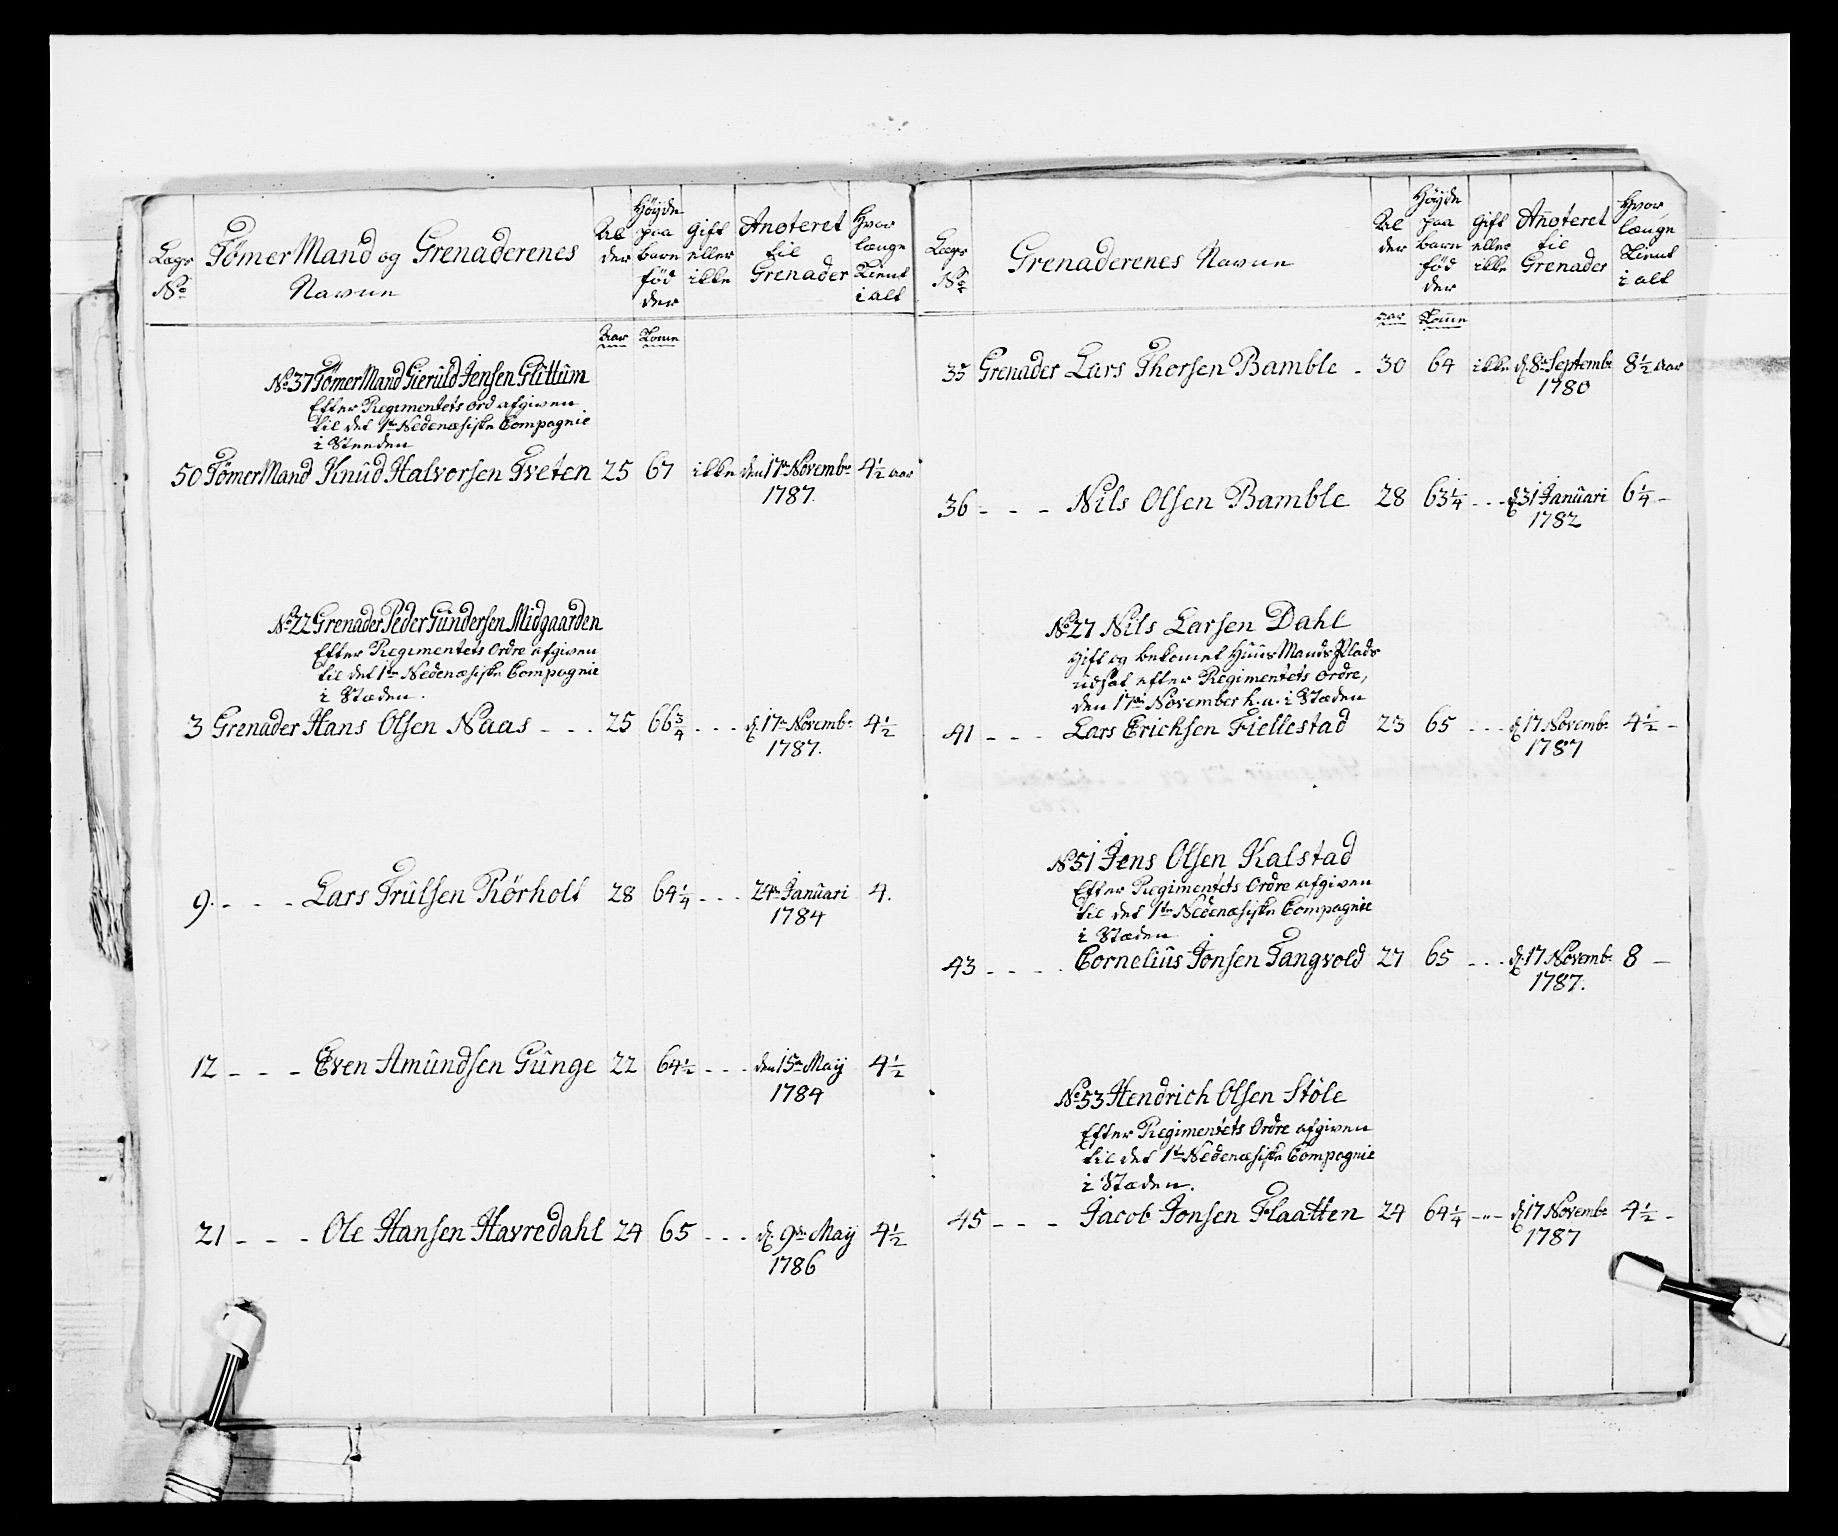 Lægs No
Tømer Mand og Grenaderenes Navne
Alder
Høyde paa bare fødder
Gift eller ikke
Anoteret til Grenader
Hvor længe Tient i alt
Aar Tome
No 37 Tømer Mand Gieruld Jensen Glittum
Efter Regimentets Ord afgiven
til det 1te Nedenæsiske Compagnie
i Steeden
50 Tømer Mand Knud Halvorsen Tveten 25 67 ikke den 17de Novembr 4½ aar
1787.
No 22 Grenader Peder Gundersen Midgaarden
Efter Regimentets Ordre afgiven
til det 1te Nedenæsiske Compagnie
i Stæden.
3 Grenader Hans Olsen Naas - - - 25 66¾ - - - d. 17de Novembr 4½
1787.
9. - - - Lars Trulsen Rørholt 28 64¼ - - - 24de Januari 4.
1784
12 - - - Even Amundsen Gunge 22 64½ - - - den 15de May 4½
1784
21 - - - Ole Hansen Havredahl 24 65 - - - d. 9de May 4½
1786
Lægs No
Grenaderenes Navne
Alder
Høyde paa bare fødder
Gift eller ikke
Anoteret til Grenader
Hvor længe Tient i alt
aar Tome
35 Grenader Lars Thorsen Bamble - 30 64 ikke d. 8de Septembr 8½ aar
1780
36 - - - Nils Olsen Bamble 28 63¼ - - - d. 31 Januari 6¼ -
1782
No 27 Nils Larsen Dahl
gift og bekomet Huus Mands Plads
udsat efter Regimentets Ordre,
den 17de November h.a. i Stæden
41 - - - Lars Erichsen Fiellestad 23 65 - - - d. 17 Novembr 4½ -
1787
No 51 Jens Olsen Kalstad
Efter Regimentets Ordre afgiven
til det 1te Nedenæsiske Compagnie
i Stæden
43 - - - - Cornelius Jonsen Tangvold 27 65 - - - d. 17 Novembr 8 -
1787.
No 53 Hendrich Olsen Støle
Efter Regimentets Ordre afgiven
til det 1te Nedenæsiske Compagnie
i Stæden.
45 - - - Jacob Jonsen Flaatten 24 64¼ - - - d. 17 Novembr 4½ -
1787